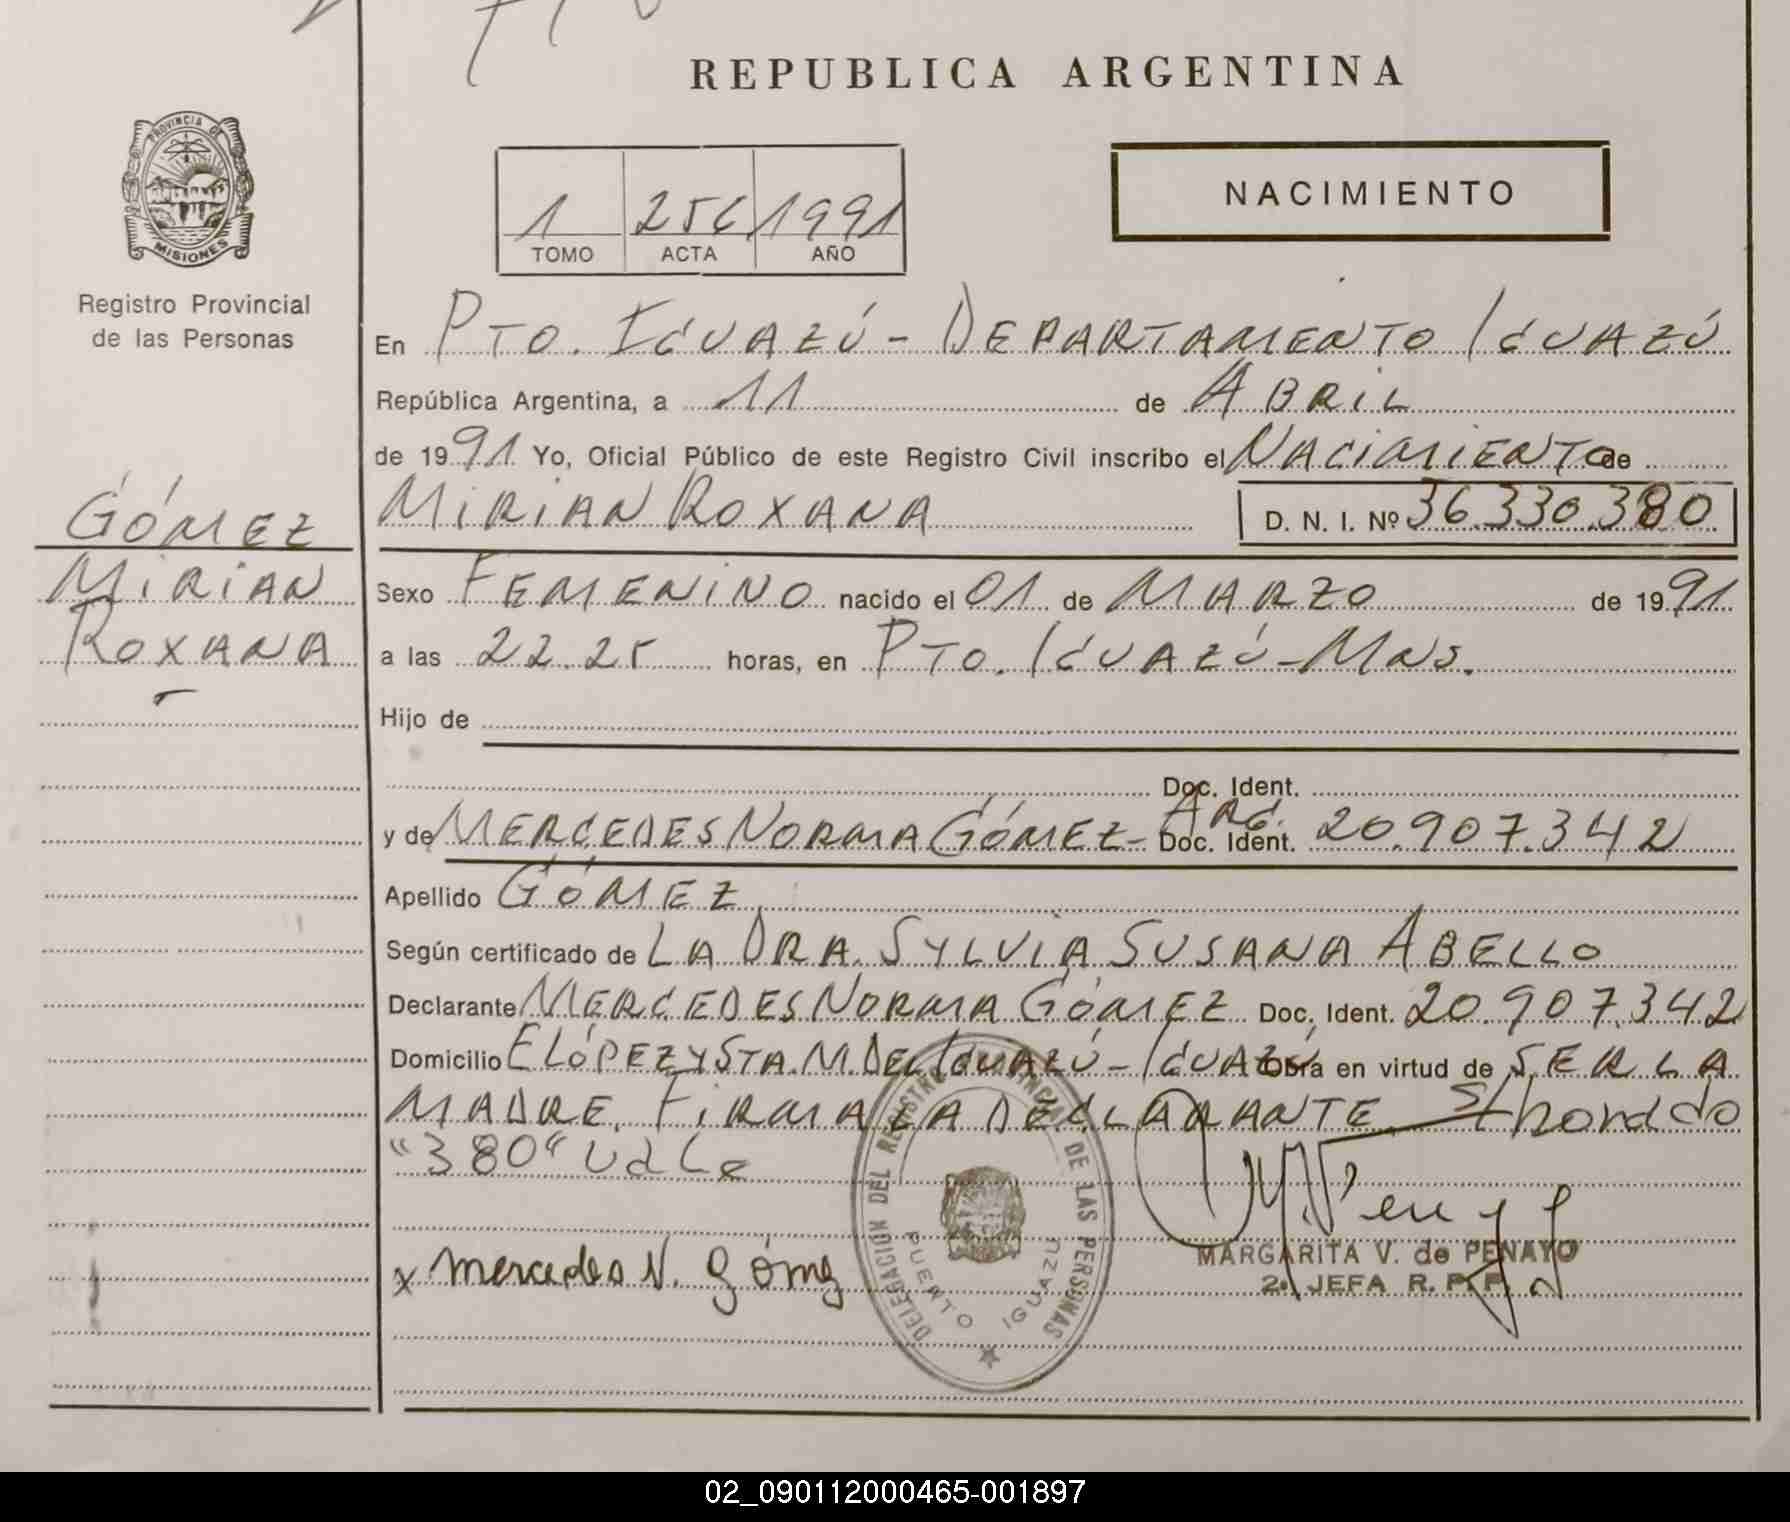 REPUBLICA ARGENTINA
PROVINCIA DE
MISIONES
Registro Provincial
de las Personas
NACIMIENTO
1 256 1991
TOMO ACTA AÑO
En PTO. IGUAZÚ - DEPARTAMENTO IGUAZÚ
República Argentina, a 11 de ABRIL
de 1991 Yo, Oficial Público de este Registro Civil inscribo el NACIMIENTO de
MIRIAN ROXANA D. N. I. Nº 36.330.380
GÓMEZ
MIRIAN
ROXANA
Sexo FEMENINO nacido el 01 de MARZO de 1991
a las 22.25 horas, en PTO. IGUAZÚ - MNS.
Hijo de
Doc. Ident.
y de MERCEDES NORMA GÓMEZ - Doc. Ident. ARG. 20.907.342
Apellido GÓMEZ
Según certificado de LA DRA. SYLVIA SUSANA ABELLO
Declarante MERCEDES NORMA GÓMEZ Doc. Ident. 20.907.342
Domicilio E LÓPEZ Y STA. M. DEL IGUAZÚ - IGUAZÚ Obra en virtud de SER LA
MADRE. FIRMA LA DECLARANTE
"380" Vale
DELEGACION DEL REGISTRO PROVINCIAL DE LAS PERSONAS
PUERTO IGUAZU
x mercedes N. gómez
MARGARITA V. de PENAYO
2a. JEFA R. P. P.
02_090112000465-001897